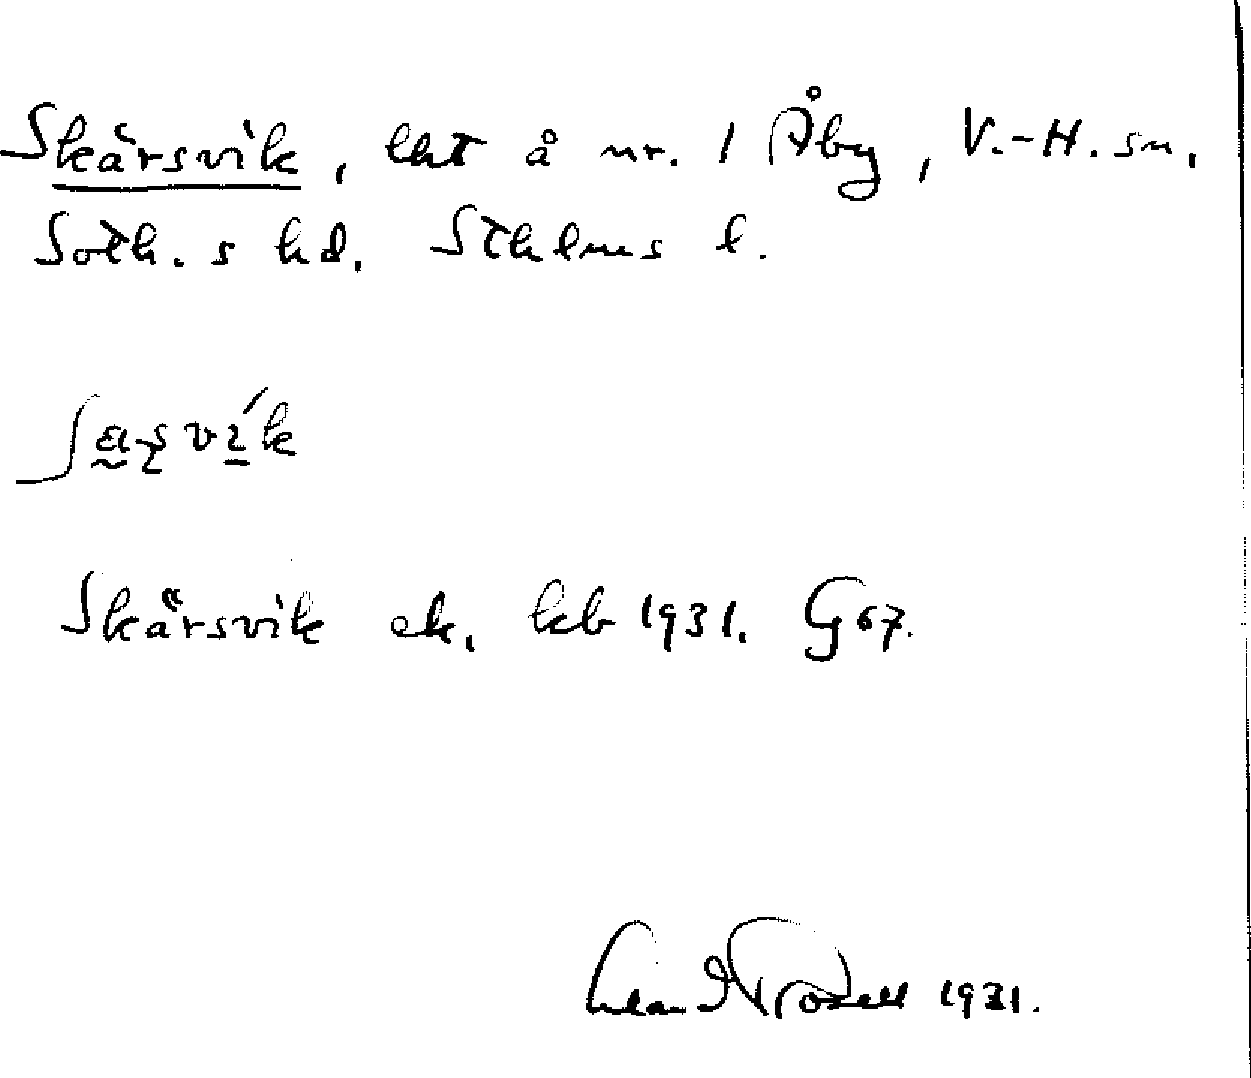 Skärsvik, lht å nr. 1 Åby, V.-H. sn.
Soth. s hd. Sthlms l.
Skärsvik ek. kb 1931. G 67.
1931.